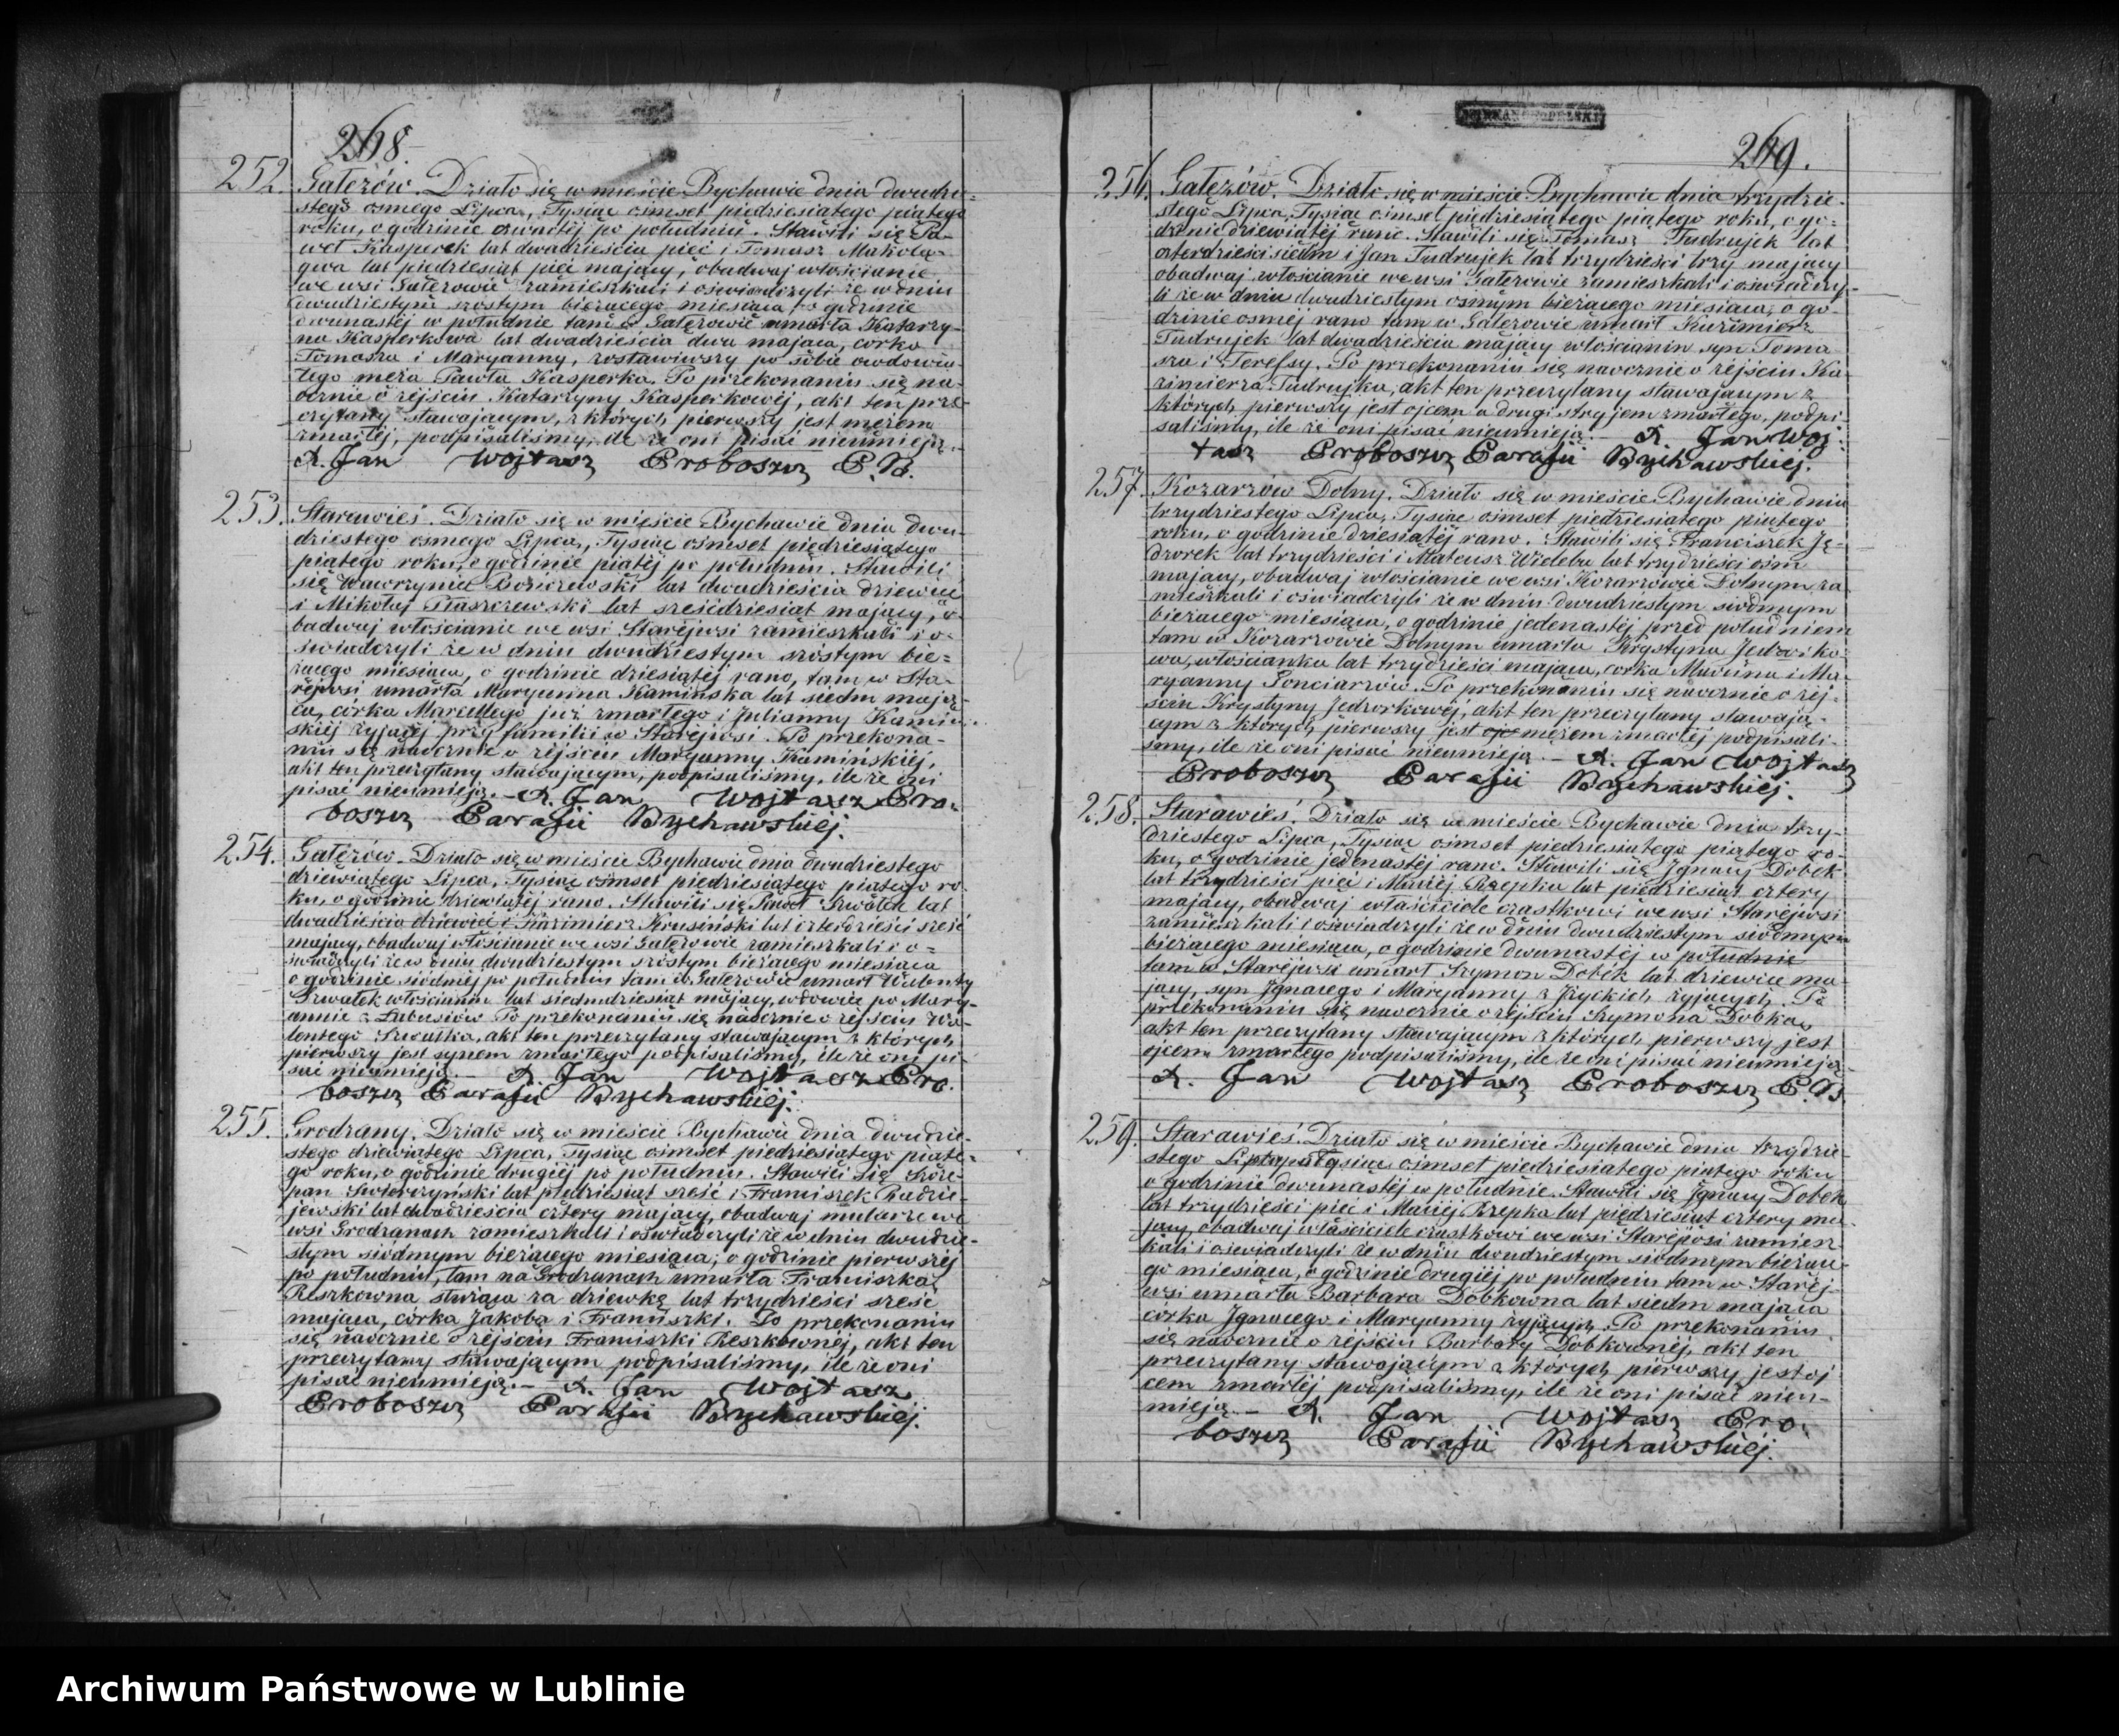 268.
252. Gałęzów. Działo się w mieście Bychawie dnia dwudzie-
stego osmego Lipca, Tysiąc ośmset piędziesiątego piątego
roku, o godzinie czwartéj po południu. Stawili się Pa-
weł Kasperek lat dwadzieścia pięć i Tomasz Makola-
gwa lat piędziesiąt pięć mający, obadwaj włościanie
we wsi Gałęzowie zamieszkali i oświadczyli że w dniu
dwudziestym szóstym bieżącego miesiąca o godzinie
dwunastéj w południe tam w Gałęzowie umarła Katarzy-
na Kasperkowa lat dwadzieścia dwa mająca, córka
Tomasza i Maryanny, zostawiwszy po sobie owdowia-
łego męża Pawła Kasperka. Po przekonaniu się na-
ocznie o zejściu Katarzyny Kasperkowéj, akt ten prze-
czytany stawającym, z których pierwszy jest mężem
zmarłéj, podpisaliśmy, ile że oni pisać nieumieją.
X. Jan Wojtasz Proboszcz P.B.
253. Starawieś. Działo się w mieście Bychawie dnia dwu-
dziestego osmego Lipca, Tysiąc ośmset piędziesiątego
piątego roku, o godzinie piątéj po południu. Stawili
się Wawrzyniec lat dwadzieścia dziewięć
i Mikołaj lat sześćdziesiąt mający, o-
badwaj włościanie we wsi Staréjwsi zamieszkali i o-
świadczyli że w dniu dwudziestym szóstym bie-
żącego miesiąca, o godzinie dziesiątéj rano, tam w Sta-
réjwsi umarła Maryanna Kamińska lat siedm mają-
ca, córka Marcellego już zmarłego i Julianny Kamiń-
skiéj żyjącéj przy familii w Staréjwsi. Po przekona-
niu się naocznie o zejściu Maryanny Kamińskiéj,
akt ten przeczytany stawającym, podpisaliśmy, ile że oni
pisać nieumieją. - X. Jan Wojtasz Pro-
boszcz Parafii Bychawskiej.
254. Gałęzów. Działo się w mieście Bychawie dnia dwudziestego
dziewiątego Lipca, Tysiąc ośmset piędziesiątego piątego ro-
ku, o godzinie dziewiątéj rano. Stawili się Szwałek lat
dwadzieścia dziewięć i Kazimierz Krusiński lat czterdzieści sześć
mający, obadwaj włościanie we wsi Gałęzowie zamieszkali i o-
świadczyli że w dniu dwudziestym szóstym bieżącego miesiąca
o godzinie siódméj po południu tam w Gałęzowie umarł Walenty
Szwałek włościanin lat siedmdziesiąt mający, wdowiec po Mary-
annie z Łubusiów. Po przekonaniu się naocznie o zejściu Wa-
lentego Szwałka, akt ten przeczytany stawającym z których
pierwszy jest synem zmarłego podpisaliśmy, ile że oni pi-
sać nieumieją. - X. Jan Wojtasz Pro-
boszcz Parafii Bychawskiej.
255. Grodzany. Działo się w mieście Bychawie dnia dwudzie-
stego dziewiątego Lipca, Tysiąc ośmset piędziesiątego piąte-
go roku, o godzinie drugiéj po południu. Stawili się Szcze-
pan Świerczyński lat piędziesiąt sześć i Franciszek Radzie-
jewski lat dwadzieścia cztery mający, obadwaj mularze we
wsi Grodzanach zamieszkali i oświadczyli że w dniu dwudzie-
stym siódmym bieżącego miesiąca, o godzinie pierwszéj
po południu, tam na Grodzanach umarła Franciszka
Reszkowna służąca za dziewkę lat trzydzieści sześć
mająca, córka Jakoba i Franciszki. Po przekonaniu
się naocznie o zejściu Franciszki Reszkownéj, akt ten
przeczytany stawającym podpisaliśmy, ile że oni
pisać nieumieją. - X. Jan Wojtasz
Proboszcz Parafii Bychawskiej.
269.
256. Gałęzów. Działo się w mieście Bychawie dnia trzydzie-
stego Lipca, Tysiąc ośmset piędziesiątego piątego roku, o go-
dzinie dziewiątéj rano. Stawili się Tomasz Tudrujek lat
czterdzieści siedm i Jan Tudrujek lat trzydzieści trzy mający
obadwaj włościanie we wsi Gałęzowie zamieszkali i oświadczy-
li że w dniu dwudziestym osmym bieżącego miesiąca, o go-
dzinie osméj rano tam w Gałęzowie umarł Kazimierz
Tudrujek lat dwadzieścia mający włościanin syn Toma-
sza i Teressy. Po przekonaniu się naocznie o zejściu Ka-
zimierza Tudrujka, akt ten przeczytany stawającym z
których pierwszy jest ojcem a drugi stryjem zmarłego, podpi-
saliśmy, ile że oni pisać nieumieją. - X. Jan Woj-
tasz Proboszcz Parafii Bychawskiej.
257. Kozarzów Dolny. Działo się w mieście Bychawie dnia
trzydziestego Lipca, Tysiąc ośmset piędziesiątego piątego
roku, o godzinie dziesiątéj rano. Stawili się Franciszek Ję-
dzorek lat trzydzieści i Mateusz Widelba lat trzydzieści ośm
mający, obadwaj włościanie we wsi Kozarzowie Dolnym za-
mieszkali i oświadczyli że w dniu dwudziestym siódmym
bieżącego miesiąca, o godzinie jedenastéj przed południem
tam w Kozarzowie Dolnym umarła Krystyna
włościanka lat trzydzieści mająca, córka Marcina i Ma-
ryanny Sonciarzów. Po przekonaniu się naocznie o zej-
ściu Krystyny Jedzorkowéj, akt ten przeczytany stawają-
cym z których pierwszy jest mężem zmarłéj podpisali-
śmy, ile że oni pisać nieumieją. - X. Jan Wojtasz
Proboszcz Parafii Bychawskiej.
258. Starawieś. Działo się w mieście Bychawie dnia trzy-
dziestego Lipca, Tysiąc ośmset piędziesiątego piątego ro-
ku, o godzinie jedenastéj rano. Stawili się Ignacy Dobek
lat trzydzieści pięć i Maciéj Rzepka lat piędziesiąt cztery
mający, obadwaj właściciele cząstkowi we wsi Staréjwsi
zamieszkali i oświadczyli że w dniu dwudziestym siódmym
bieżącego miesiąca, o godzinie dwunastéj w południe
tam w Staréjwsi umarł Szymon Dobek lat dziewięć ma-
jący, syn Ignacego i Maryanny z żyjących. Po
przekonaniu się naocznie o zejściu Szymona Dobka,
akt ten przeczytany stawającym z których pierwszy jest
ojcem zmarłego podpisaliśmy, ile że oni pisać nieumieją.
X. Jan Wojtasz Proboszcz P.B.
259. Starawieś. Działo się w mieście Bychawie dnia trzydzie-
stego Lipca Tysiąc ośmset piędziesiątego piątego roku
o godzinie dwunastéj w południe. Stawili się Ignacy Dobek
lat trzydzieści pięć i Maciéj Rzepka lat piędziesiąt cztery ma-
jący obadwaj właściciele cząstkowi we wsi Staréjwsi zamiesz-
kali i oświadczyli że w dniu dwudziestym siódmym bieżące-
go miesiąca, o godzinie drugiéj po południu tam w Staréj-
wsi umarła Barbara Dobkowna lat siedm mająca
córka Ignacego i Maryanny żyjących. Po przekonaniu
się naocznie o zejściu Barbary Dobkownéj, akt ten
przeczytany stawającym z których pierwszy jest oj-
cem zmarłéj podpisaliśmy, ile że oni pisać nieu-
mieją. - X. Jan Wojtasz Pro-
boszcz Parafii Bychawskiej.
Archiwum Państwowe w Lublinie